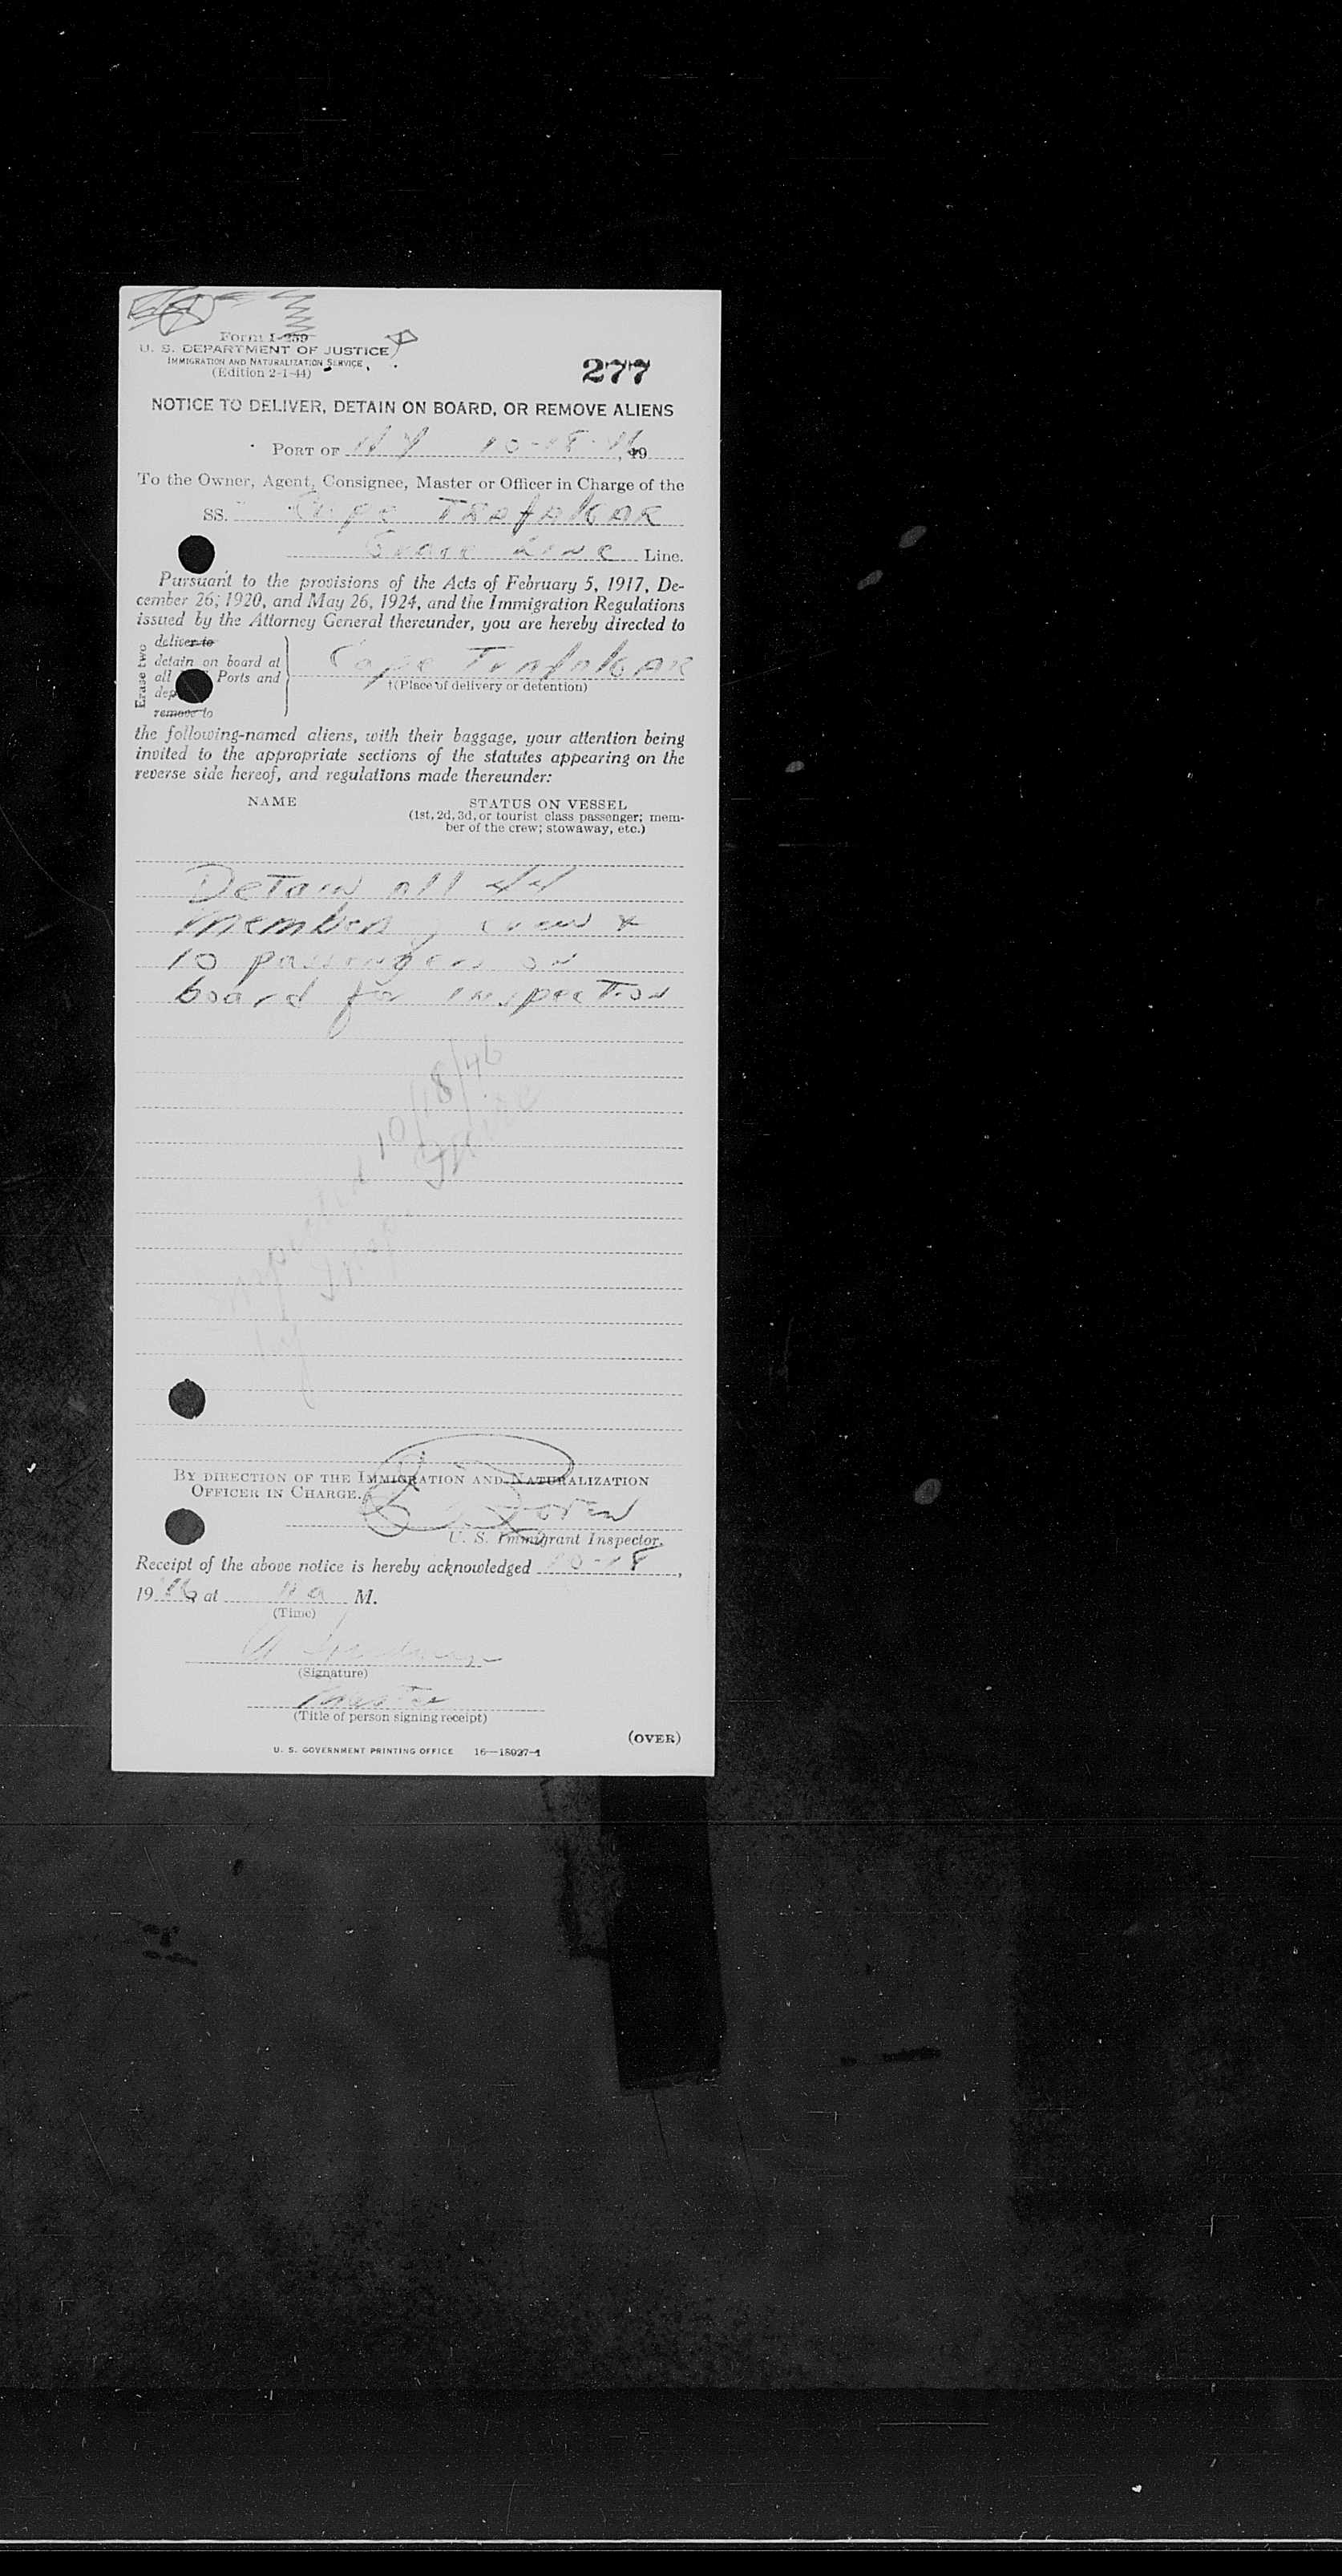 Form I-259
U. S. DEPARTMENT OF JUSTICE
IMMIGRATION AND NATURALIZATION SERVICE
(Edition 2-1-44)
277
NOTICE TO DELIVER, DETAIN ON BOARD, OR REMOVE ALIENS
PORT OF N Y 10-18-46, 19
To the Owner, Agent, Consignee, Master or Officer in Charge of the
SS. Cape TRAfAlGAR
Line Line.
Pursuant to the provisions of the Acts of February 5, 1917, De-
cember 26, 1920, and May 26, 1924, and the Immigration Regulations
issued by the Attorney General thereunder, you are hereby directed to
Erase two
deliver to
detain on board at
all Ports and
remove to
Cape TrafAlGAR
†(Place of delivery or detention)
the following-named aliens, with their baggage, your attention being
invited to the appropriate sections of the statutes appearing on the
reverse side hereof, and regulations made thereunder:
NAME
STATUS ON VESSEL
(1st, 2d, 3d, or tourist class passenger; mem-
ber of the crew; stowaway, etc.)
Detain all 44
members crew &
10 passengers on
board for inspection
10/18/46
by Insp.
BY DIRECTION OF THE IMMIGRATION AND NATURALIZATION
OFFICER IN CHARGE.
U. S. Immigrant Inspector.
Receipt of the above notice is hereby acknowledged 10-18,
1946 at 11 a M.
(Time)
(Signature)
Master
(Title of person signing receipt)
(OVER)
U. S. GOVERNMENT PRINTING OFFICE 16—18027-1